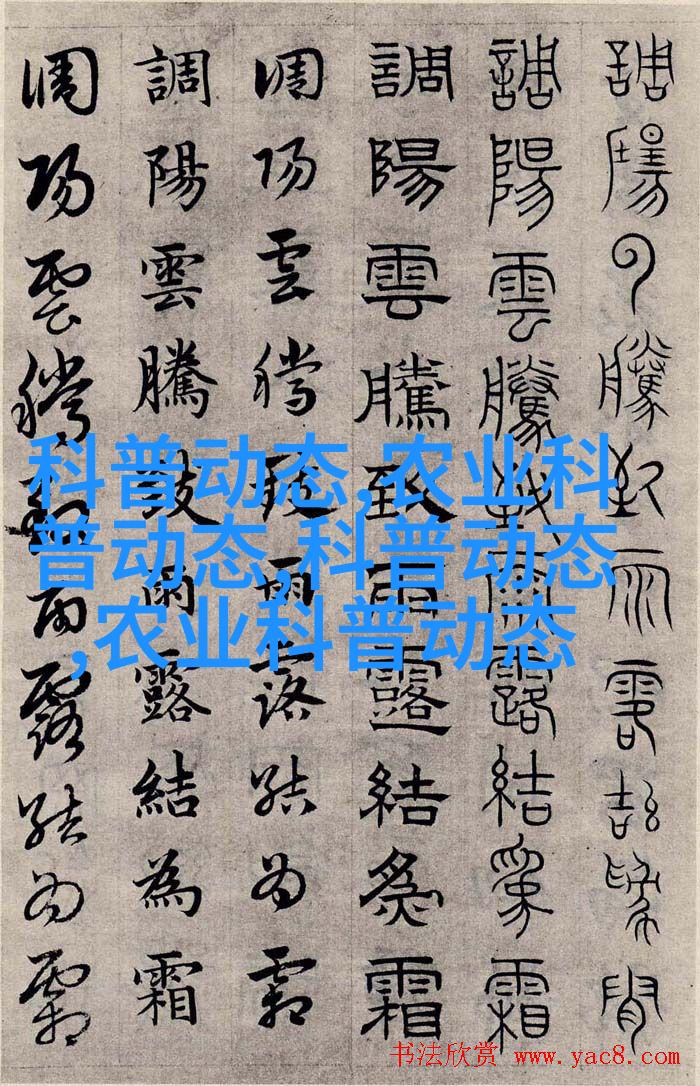 調陽雲騰致雨露結為霜
調陽雲騰致雨露結為霜
調陽雲騰致雨露結為霜
調陽雲騰致雨露結為霜
調陽雲騰致雨露結為霜
調陽雲騰致雨露結為霜
科普动态,农业科
普动态,科普动态
,农业科普动态
书法欣赏 www.yac8.com